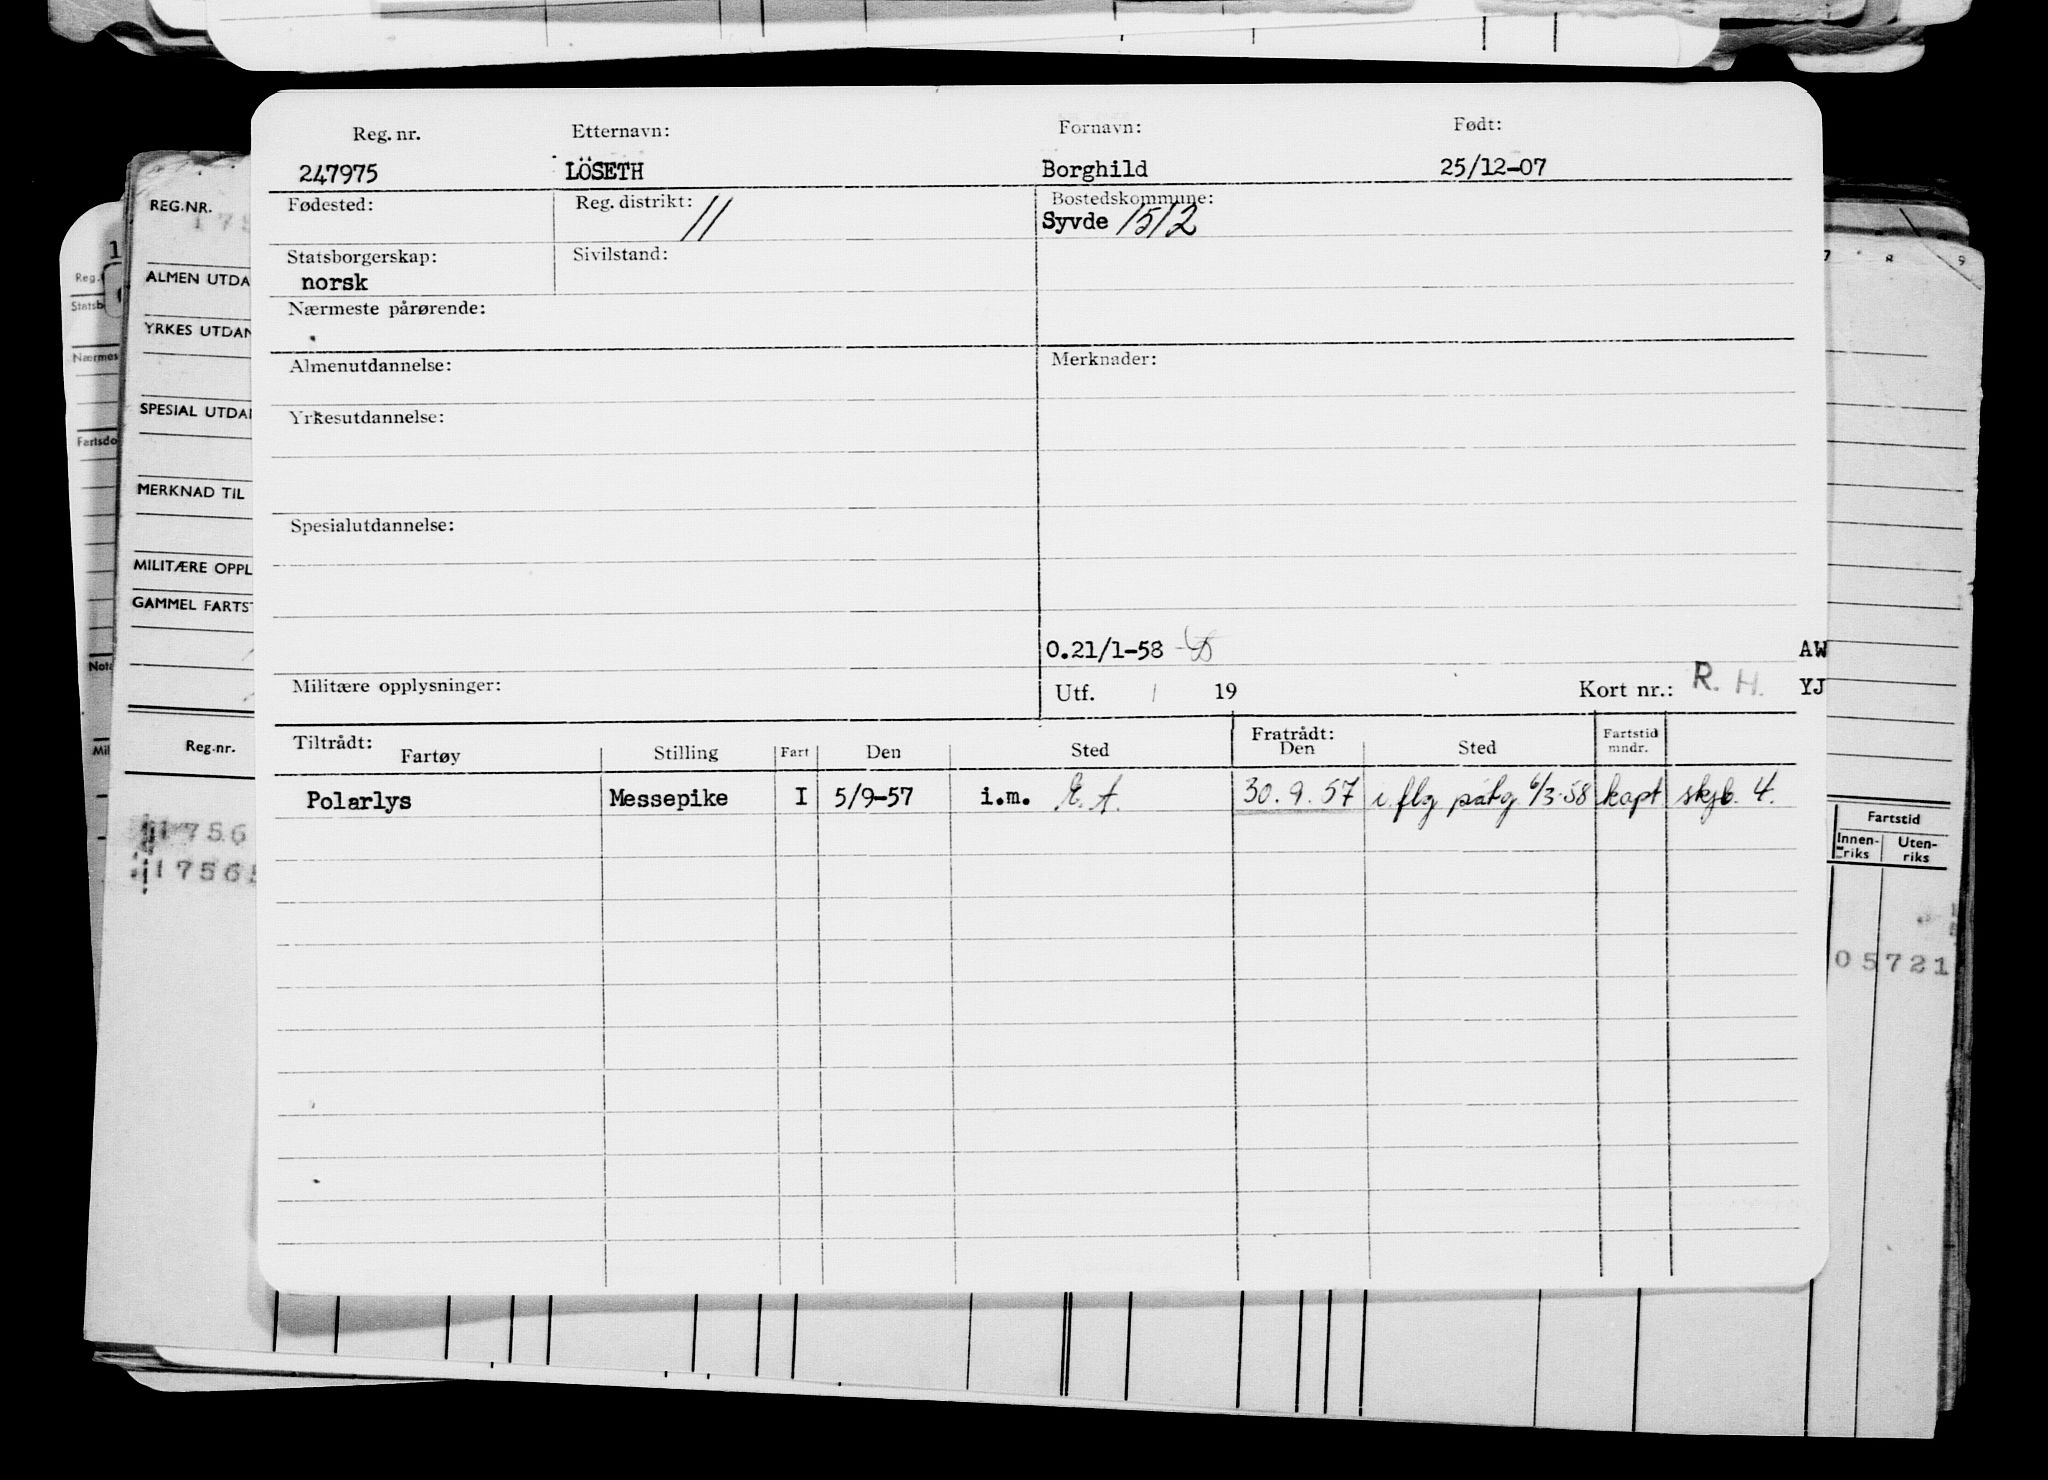 Reg. nr. Etternavn: Fornavn: Født:
247975 LÖSETH Borghild 25/12-07
Fødested: Reg. distrikt: 11 Bostedskommune:
Syvde 1512
Statsborgerskap: Sivilstand:
norsk
Nærmeste pårørende:
Almenutdannelse: Merknader:
Yrkesutdannelse:
Spesialutdannelse:
0.21/1-58 AW
Militære opplysninger: Utf. / 19 Kort nr.: R. H. YJ
Tiltrådt: Fratrådt: Fartstid
Fartøy Stilling Fart Den Sted Den Sted mndr.
Polarlys Messepike I 5/9-57 i.m. E.A. 30.9.57 i flg påtg 6/3-58 kapt skjb. 4.
REG.NR.
ALMEN UTDA
YRKES UTDAN
SPESIAL UTDA
MERKNAD TIL
MILITÆRE OPPL
GAMMEL FARTST
Reg.nr.
1756
1756
Reg.
Statsb
Nærmes
Fartsdo
Nota
Mil
7 8 9
Fartstid
Innen-riks Uten-riks
05721